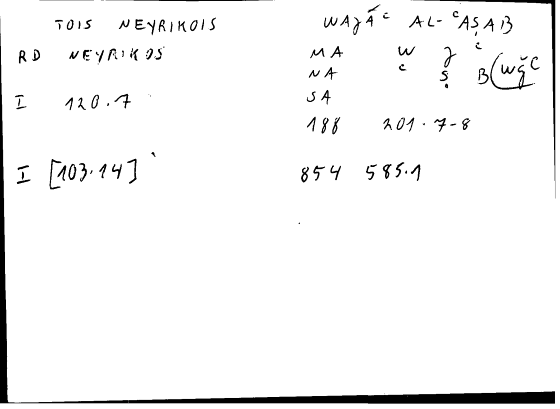 TOIS NEYRIKOIS WAJĀᶜ AL-ᶜAṢAB
RD NEYRIKOS MA W J ᶜ
NA ᶜ Ṣ B (WǧC
I 120.7 SA
188 201.7-8
I [103.14] 854 585.1